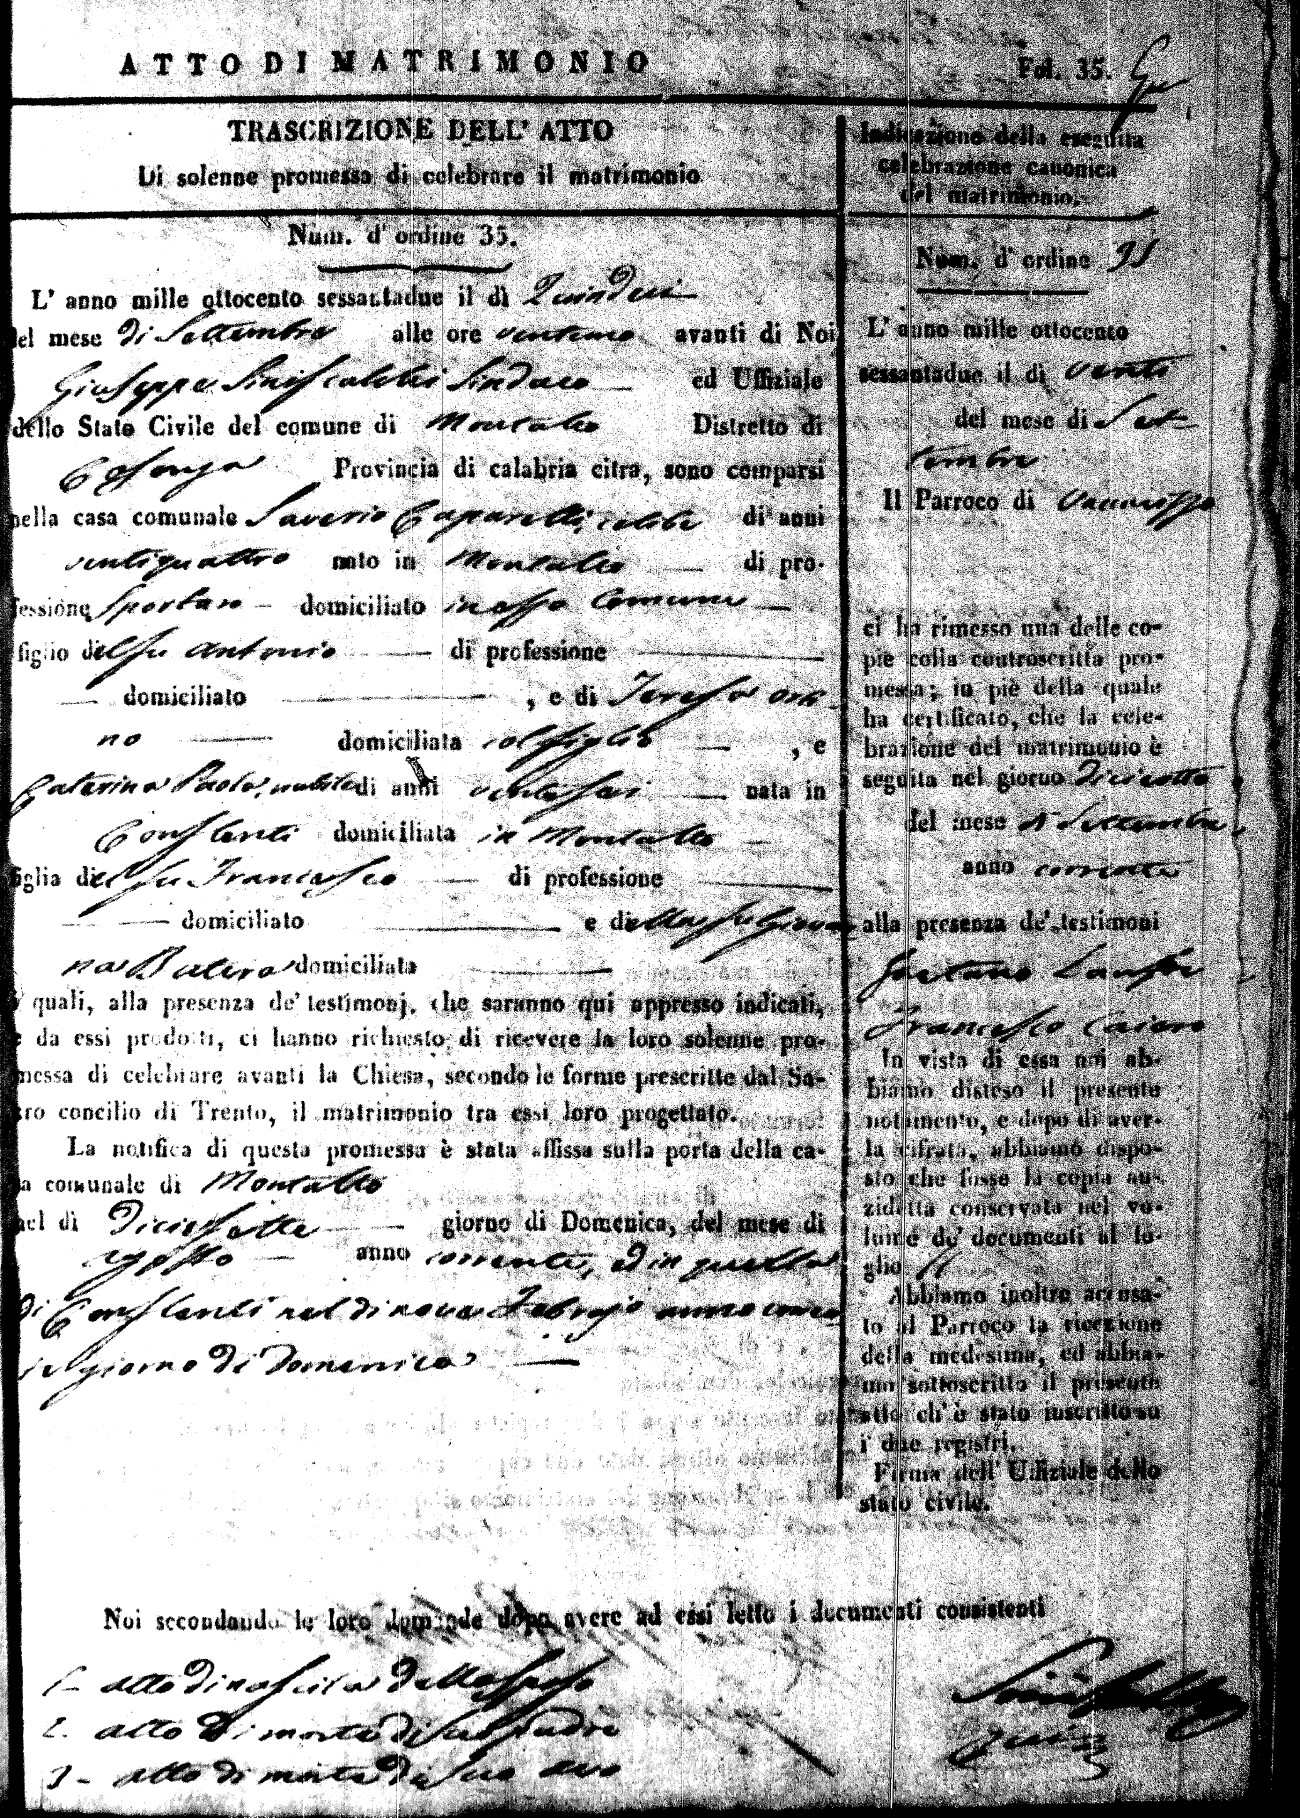 ATTO DI MATRIMONIO
Fol. 35.
TRASCRIZIONE DELL' ATTO
Di solenne promessa di celebrare il matrimonio
Num. d' ordine 35.
L' anno mille ottocento sessantadue il dì Quindici
del mese di Settembre alle ore ventuno avanti di Noi
Giuseppe Siniscalchi Sindaco ed Uffiziale
dello Stato Civile del comune di Montalto Distretto di
Cosenza Provincia di calabria citra, sono comparsi
nella casa comunale Saverio Caparelli, celibe di anni
ventiquattro nato in Montalto di pro-
fessione domiciliato in esso Comune
figlio del fu Antonio di professione
domiciliato , e di Teresa
no domiciliata col figlio , e
Caterina Paolo, nubile di anni ventisei nata in
domiciliata in Montalto
figlia del fu Francesco di professione
domiciliato e della fu Giovan
na domiciliata
i quali, alla presenza de' testimonj, che saranno qui appresso indicati,
e da essi prodotti, ci hanno richiesto di ricevere la loro solenne pro-
messa di celebrare avanti la Chiesa, secondo le forme prescritte dal Sa-
cro concilio di Trento, il matrimonio tra essi loro progettato.
La notifica di questa promessa è stata affissa sulla porta della ca-
sa comunale di Montalto
nel dì Diciassette giorno di Domenica, del mese di
agosto anno corrente, ed in quella
di nel dì nove Febrajo anno
giorno di Domenica
Indicazione della eseguita
celebrazione canonica
del matrimonio.
Num. d' ordine 35
L' anno mille ottocento
sessantadue il dì venti
del mese di Set-
tembre
Il Parroco di
ci ha rimesso una delle co-
pie colla controscritta pro-
messa; in piè della quale
ha certificato, che la cele-
brazione del matrimonio è
seguita nel giorno diciotto
del mese di Settembre
anno corrente
alla presenza de' testimoni
Gaetano
Francesco
In vista di essa noi ab-
biamo disteso il presente
notamento, e dopo di aver-
la cifrata, abbiamo dispo-
sto che fosse la copia an-
zidetta conservata nel vo-
lume de' documenti al fo-
glio
Abbiamo inoltre accusa-
to al Parroco la ricezione
della medesima, ed abbia-
mo sottoscritto il presente
atto ch' è stato inscritto su
i due registri.
Firma dell' Uffiziale dello
stato civile.
Noi secondando le loro domande dopo avere ad essi letto i documenti consistenti
1- atto di nascita dello sposo
2. atto di morte di suo padre
3- atto di morte di suo avo
Siniscalchi